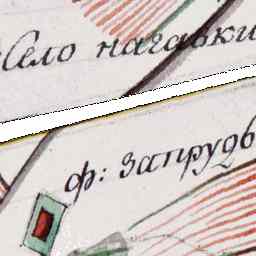 Село нагавки
ф: запрудъ